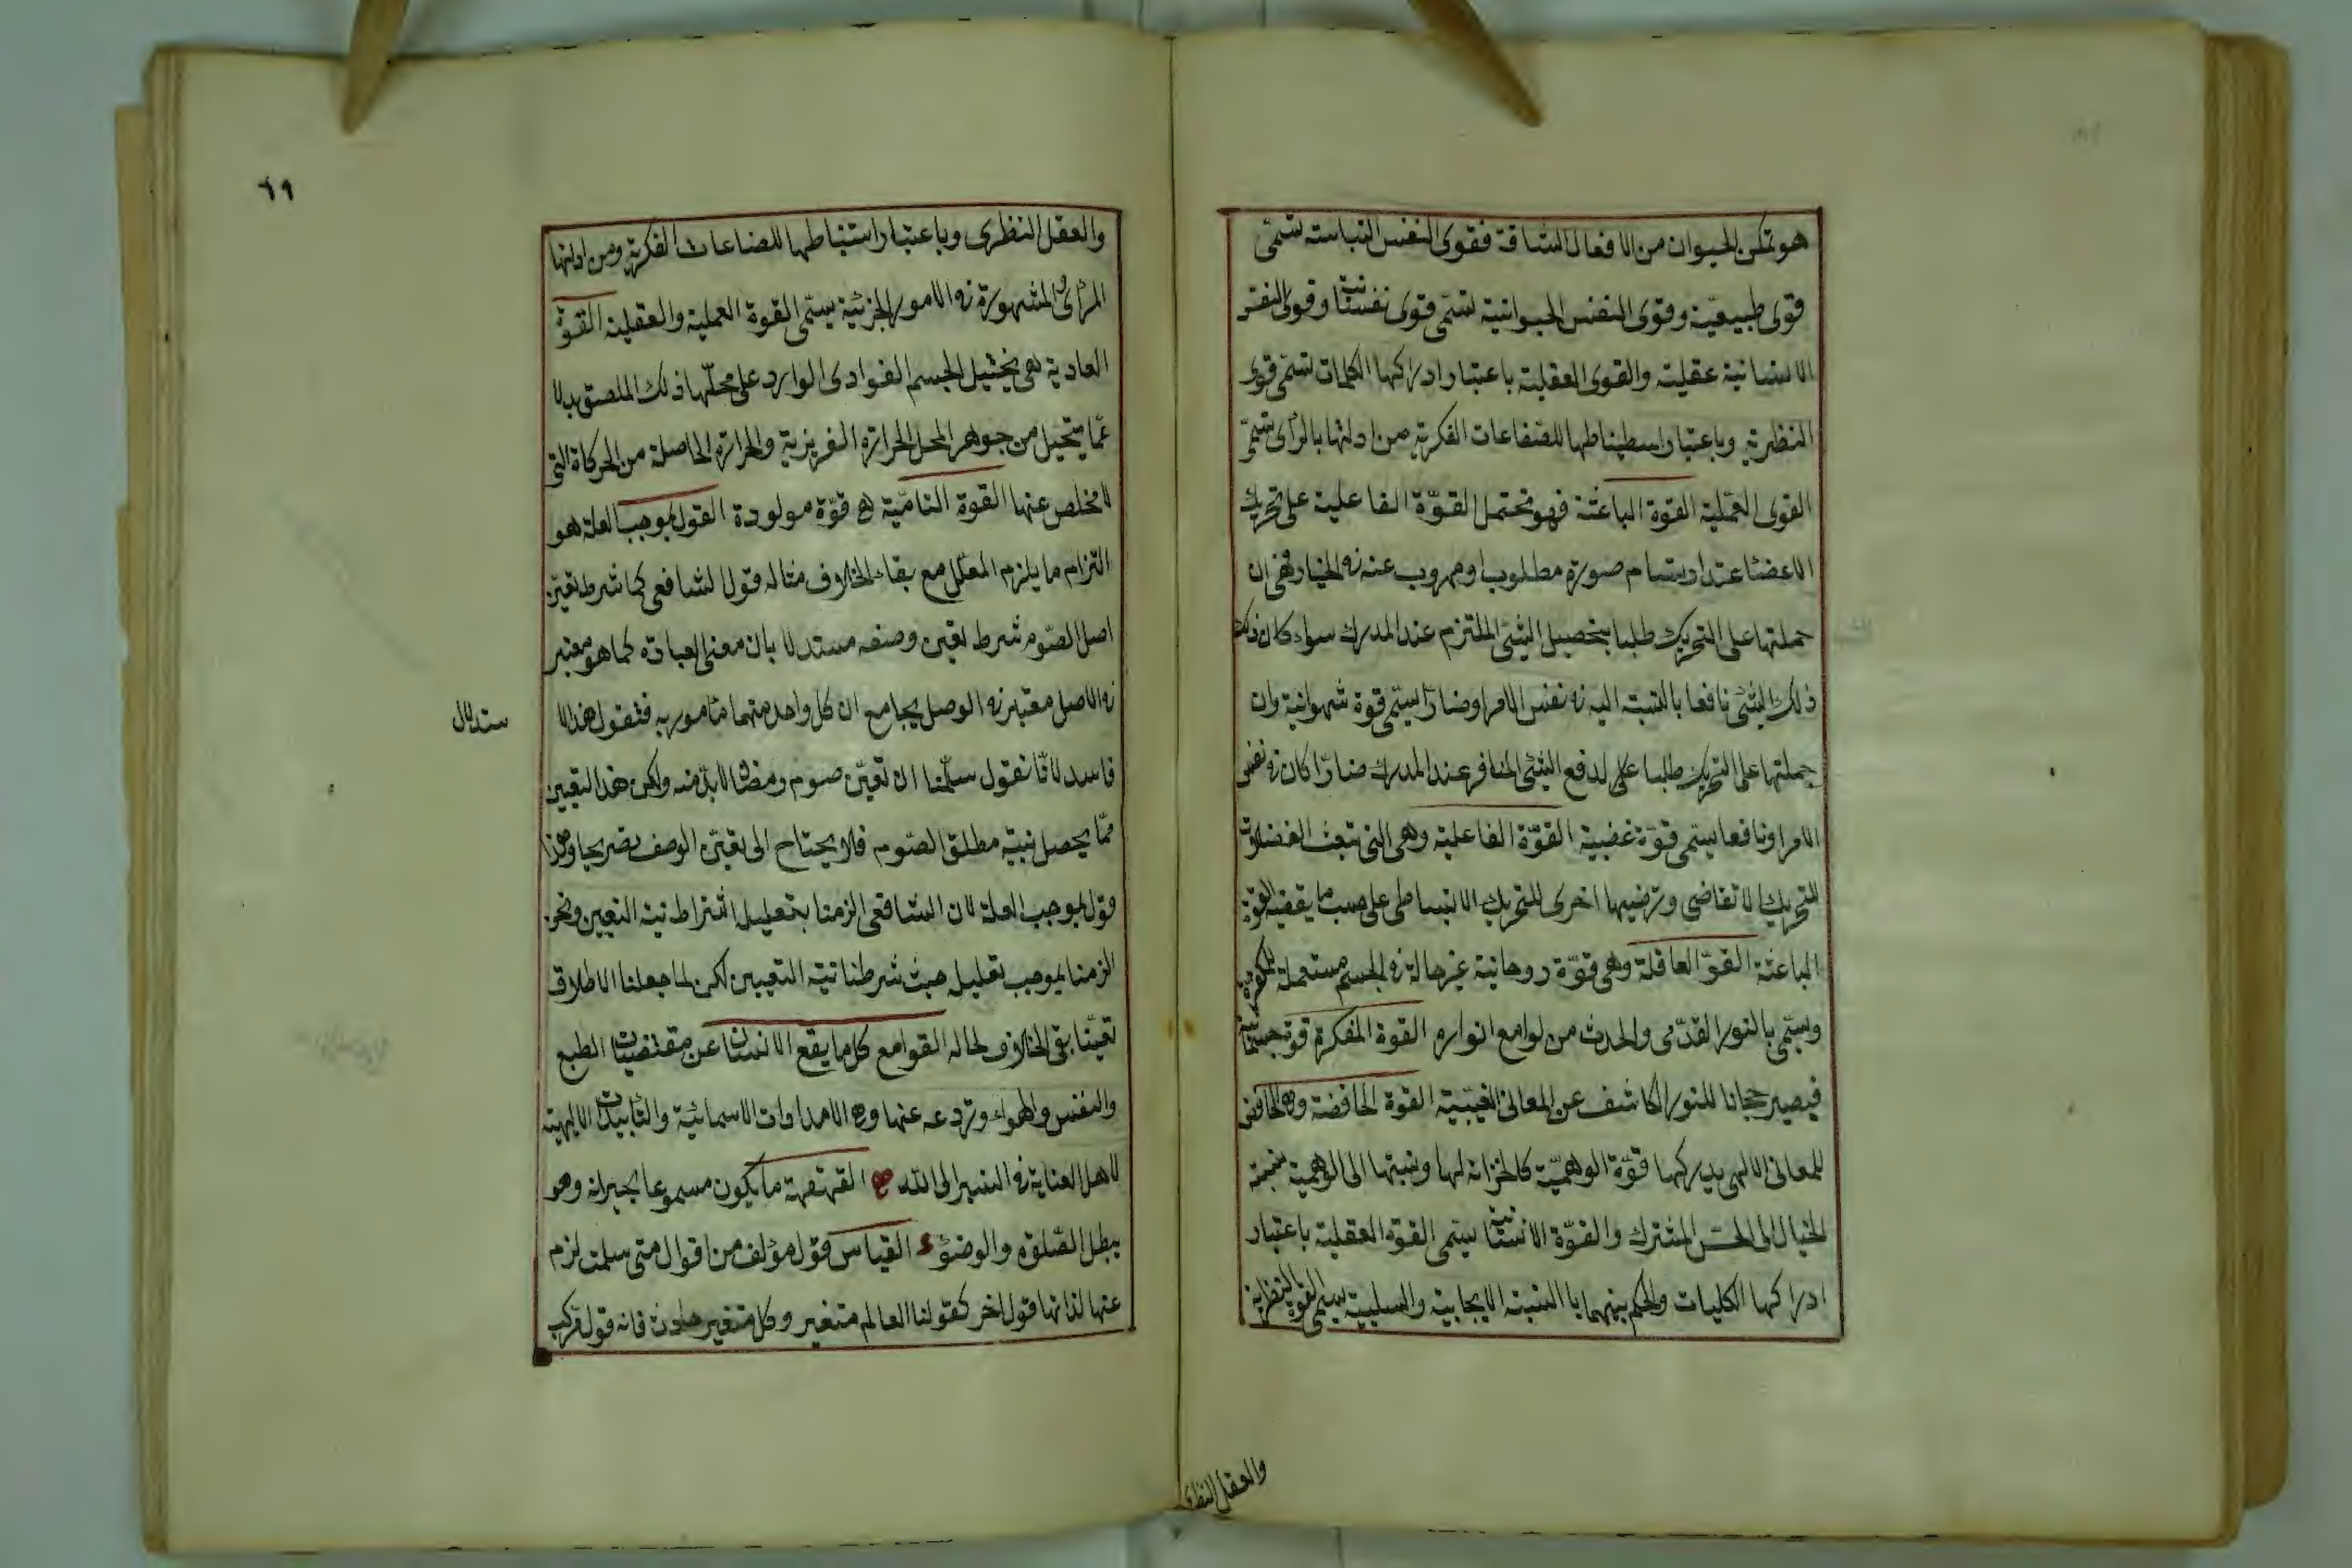 هو تمكن الحيوان من الافعال الشاقة فقوى النفس النباسته تسمّى
قوى طبيعية وقوى النفس الحيوانية تسمّى قوى نفسانية وقوى النفس
الانسانية عقلية والقوى العقلية باعتبار ادراكها الكليات تسمّى قوى
النظرية وباعتبار اسطنباطها للصفاعات الفكرية من ادلتها بالرأى تسمّى
القوى العملية القوة الباعثة فهو محتمل القوّة الفاعلية على تحريك
الاعضا عند ارتسام صورة مطلوب او مهروب عنه فى الخيار فهى ان
حملتها على التحريك طلبا بتحصيل الشئ الملتزم عند المدرك سواء كان ذلك
ذلك الشئ نافعا بالنسبة اليه فى نفس الامر او ضارّا يسمّى قوة شهوانية وان
حملتها على التحريك طلبا على لدفع الشئ المنافر عند المدرك ضارّا كان فى نفس
الامر او نافعا يسمى قوّة غضبية القوّة الفاعلية وهى التى تبعث العضلات
للتحريك لا تقاضى وترضيها اخرى للتحريك الانبساطى على حسب ما يقضيه القوة
الباعثة القوّ العاقلة وهى قوّة روحانية غير حالة فى الجسم مستعملة للمفكرة
وسمّى بالنور القدّسى والحدث من لوامع انواره القوة المفكرة قوة جسمانية
فيصير حجابا للنور الكاشف عن المعانى الغيبية القوة الحافضة وهى الحافض
للمعانى الالهى يدركها قوّة الوهميّة كالخزانه لها ونسبتها الى الوهمية نسبة
الخيال الى الحسّ المشترك والقوّة الانسانية يسمى القوة العقلية باعتبار
ادراكها الكليات والحكم بينهما با النسبة الايجابية والسلبية يسمى القوة النظرية
والعقل النظرى
٦٩
والعقل النظرى وباعتبار استنباطها للصناعات الفكرية ومن ادلتها
المرأى والمشهورة فى الامور الجزئية يسمّى القوة العملية والعقلية القوة
العادية هى يحثيل الجسم الغوادى الوارد على محلّها ذلك الملصق بدلا
عمّا يتحيل من جوهر المحل الحرارة الغريزية والحرارة الحاصلة من الحركاة التى
لا مخلص عنها القوة الناميّة هى قوّة مولودة القول بموجب العلة هو
التزام ما يلزم المعلّل مع بقاء الخلاف مثاله قول الشافعى كما شرط تعيّن
اصل الصّوم شرط تعيين وصفه مستدلا بان معنى العبادة كما هو معتبر
فى الاصل معتبر فى الوصل بجامع ان كل واحد منهما مأمور به فنقول هذا الا
ستدلال
فاسد لانّا نقول سلّمنا ان تعيّن صوم رمضان لابدّ منه ولكن هذا التعيين
ممّا يحصل بنيّة مطلق الصّوم فلا يحتاج الى تعيّن الوصف تصريحا وهذا
قول بموجب العلة لان الشافعى الزمنا بتعليل اشتراط نية التعيين ونحن
الزمنا بموجب تعليل حيث شرطنا نية التعيين لكن لما جعلنا الاطلاق
تعيّنا بقى الخلاف لحاله القوامع كل ما يقع الانسان عن مقتضيات الطبع
والنفس والهواء وتردعه عنها وهى الامدادات الاسمائية والتأييدات الالهية
لاهل العناية فى السير الى الله القهقهة ما يكون مسموعا بجيرانه وهو
يبطل الصّلوة والوضؤ القياس قول مؤلف من اقوال متى سلمت لزم
عنها لذاتها قول اخر كقولنا العالم متغير وكل متغير حادث فانه قول مركب